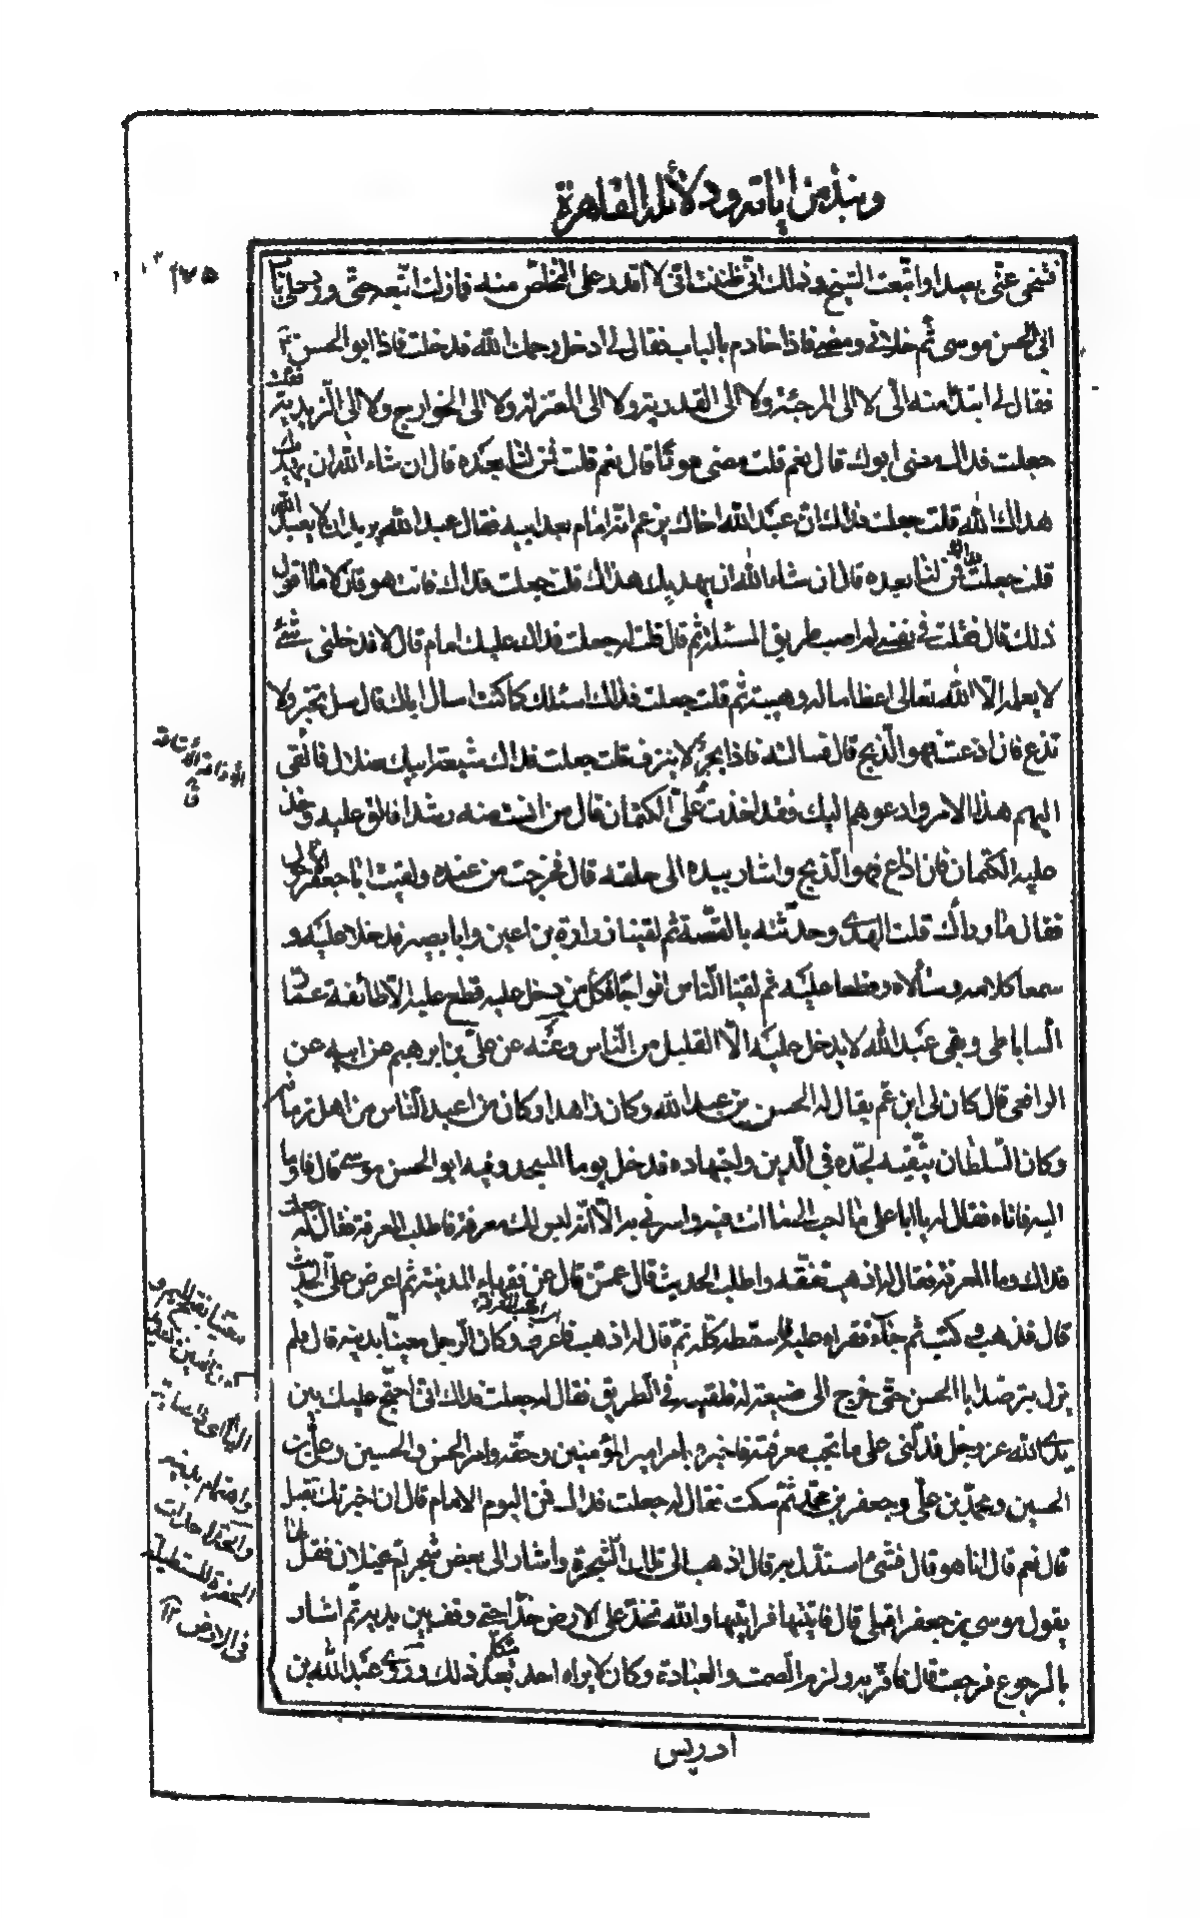 ونبذ من اياته ودلائله القاهرة
فتنحى عنّى بعيدا واتّبعت الشيخ وذلك انّى ظننت انّى لا اقدر على التخلّص منه فما زلت اتّبعه حتّى ورد على باب
ابى الحسن موسى ثم خلانى ومضى فاذا خادم بالباب فقال لى ادخل رحمك الله فدخلت فاذا ابو الحسن ع
فقال لى ابتداء منه الىّ لا الى المرجئة ولا الى القدرية ولا الى المعتزلة ولا الى الخوارج ولا الى الزيدية فقلت
جعلت فداك مضى ابوك قال نعم قلت مضى موتا قال نعم قلت فمن لنا بعده قال ان شاء الله ان يهديك
هداك الله قلت جعلت فداك انّ عبد الله اخاك يزعم انّه امام بعد ابيه فقال عبد الله يريد ان لا يعبد الله
قلت جعلت فداك فمن لنا بعده قال ان شاء الله ان يهديك هداك قلت جعلت فداك فانت هو قال لا ما اقول
ذلك قال فقلت فى نفسى لم اصب طريق المسئلة ثم قال قلت له جعلت فداك عليك امام قال لا فدخلنى شئ
لا يعلمه الّا الله تعالى اعظاما له وهيبة ثم قلت جعلت فداك اسئلك كما كنت اسال اباك قال سل تخبر ولا
تذع فان اذعت فهو الذبح قال فسالته فاذا بحر لا ينزف قلت جعلت فداك شيعة ابيك ضلال فالقى
اليهم هذا الامر وادعوهم اليك فقد اخذت علىّ الكتمان قال من انست منه رشدا فالق عليه وخذ
عليه الكتمان فان اذاع فهو الذبح واشار بيده الى حلقه قال فخرجت من عنده ولقيت ابا جعفر الاحول
فقال ما وراءك قلت الهدى وحدّثته بالقصّة ثم لقينا زرارة بن اعين وابا بصير فدخلا عليه و
سمعا كلامه وسألاه وقطعا عليه ثم لقينا الناس افواجا فكل من دخل عليه قطع عليه الّا طائفة عمّار
الساباطى وبقى عبد الله لا يدخل عليه الّا القليل من النّاس وعنه عن علىّ بن ابرهيم عن ابيه عن
الرافعى قال كان لى ابن عمّ يقال له الحسن بن عبد الله وكان زاهدا وكان من اعبد النّاس من اهل زمانه
وكان السّلطان يتّقيه لجدّه فى الدّين واجتهاده فدخل يوما المسجد وفيه ابو الحسن موسى قال فاوما
اليه فاتاه فقال له يا ابا على ما احب الىّ ما انت فيه واسرنى به الّا انّه ليس لك معرفة فاطلب المعرفة فقال له جعلت
فداك وما المعرفة فقال له اذهب تفقّه واطلب الحديث قال عمّن قال عن فقهاء المدينة ثم اعرض علىّ الحديث
قال فذهب وكتب ثم جاء فقراه عليه فاسقطه كلّه ثمّ قال له اذهب فاعرف وكان الرّجل معينّا بدينه قال فلم
يزل يترصّد ابا الحسن حتّى خرج الى ضيعة له فلقيه فى الطريق فقال له جعلت فداك انّى احتجّ عليك بين
يدى الله عز وجل فدلّنى على ما تجب معرفته فاخبره بامر امير المؤمنين وحقّه وامر الحسن والحسين وعلىّ بن
الحسين ومحمّد بن علىّ وجعفر بن محمّد ثم سكت فقال له جعلت فداك فمن اليوم الامام قال ان اخبرتك تقبل
قال نعم قال انا هو قال فشئ استدلّ به قال اذهب الى تلك الشجرة واشار الى بعض شجر ام غيلان فقل لها
يقول موسى بن جعفر اقبلى قال فاتيتها فرايتها والله تخدّ على الارض خدّا حتى وقف بين يديه ثم اشار
بالرجوع فرجعت قال فاقرّ به ولزم الصمت والعبادة وكان لا يراه احد يتكلّم بعد ذلك وروى عبد الله بن
ادريس
الاذاعة الافشاء
ق
واهتمام بدينه
والخدّ
الحفرة المستطيلة
فى الارض